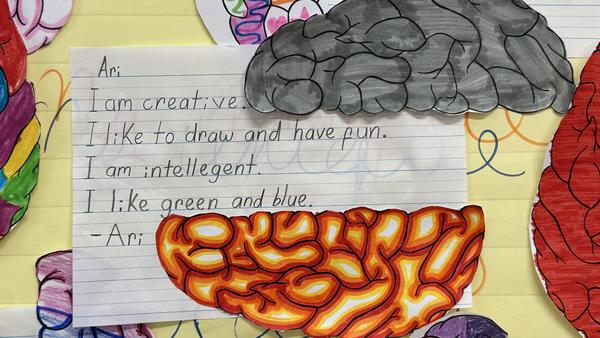 Ari
I am creative.
I like to draw and have fun.
I am intellegent.
I like green and blue.
-Ari